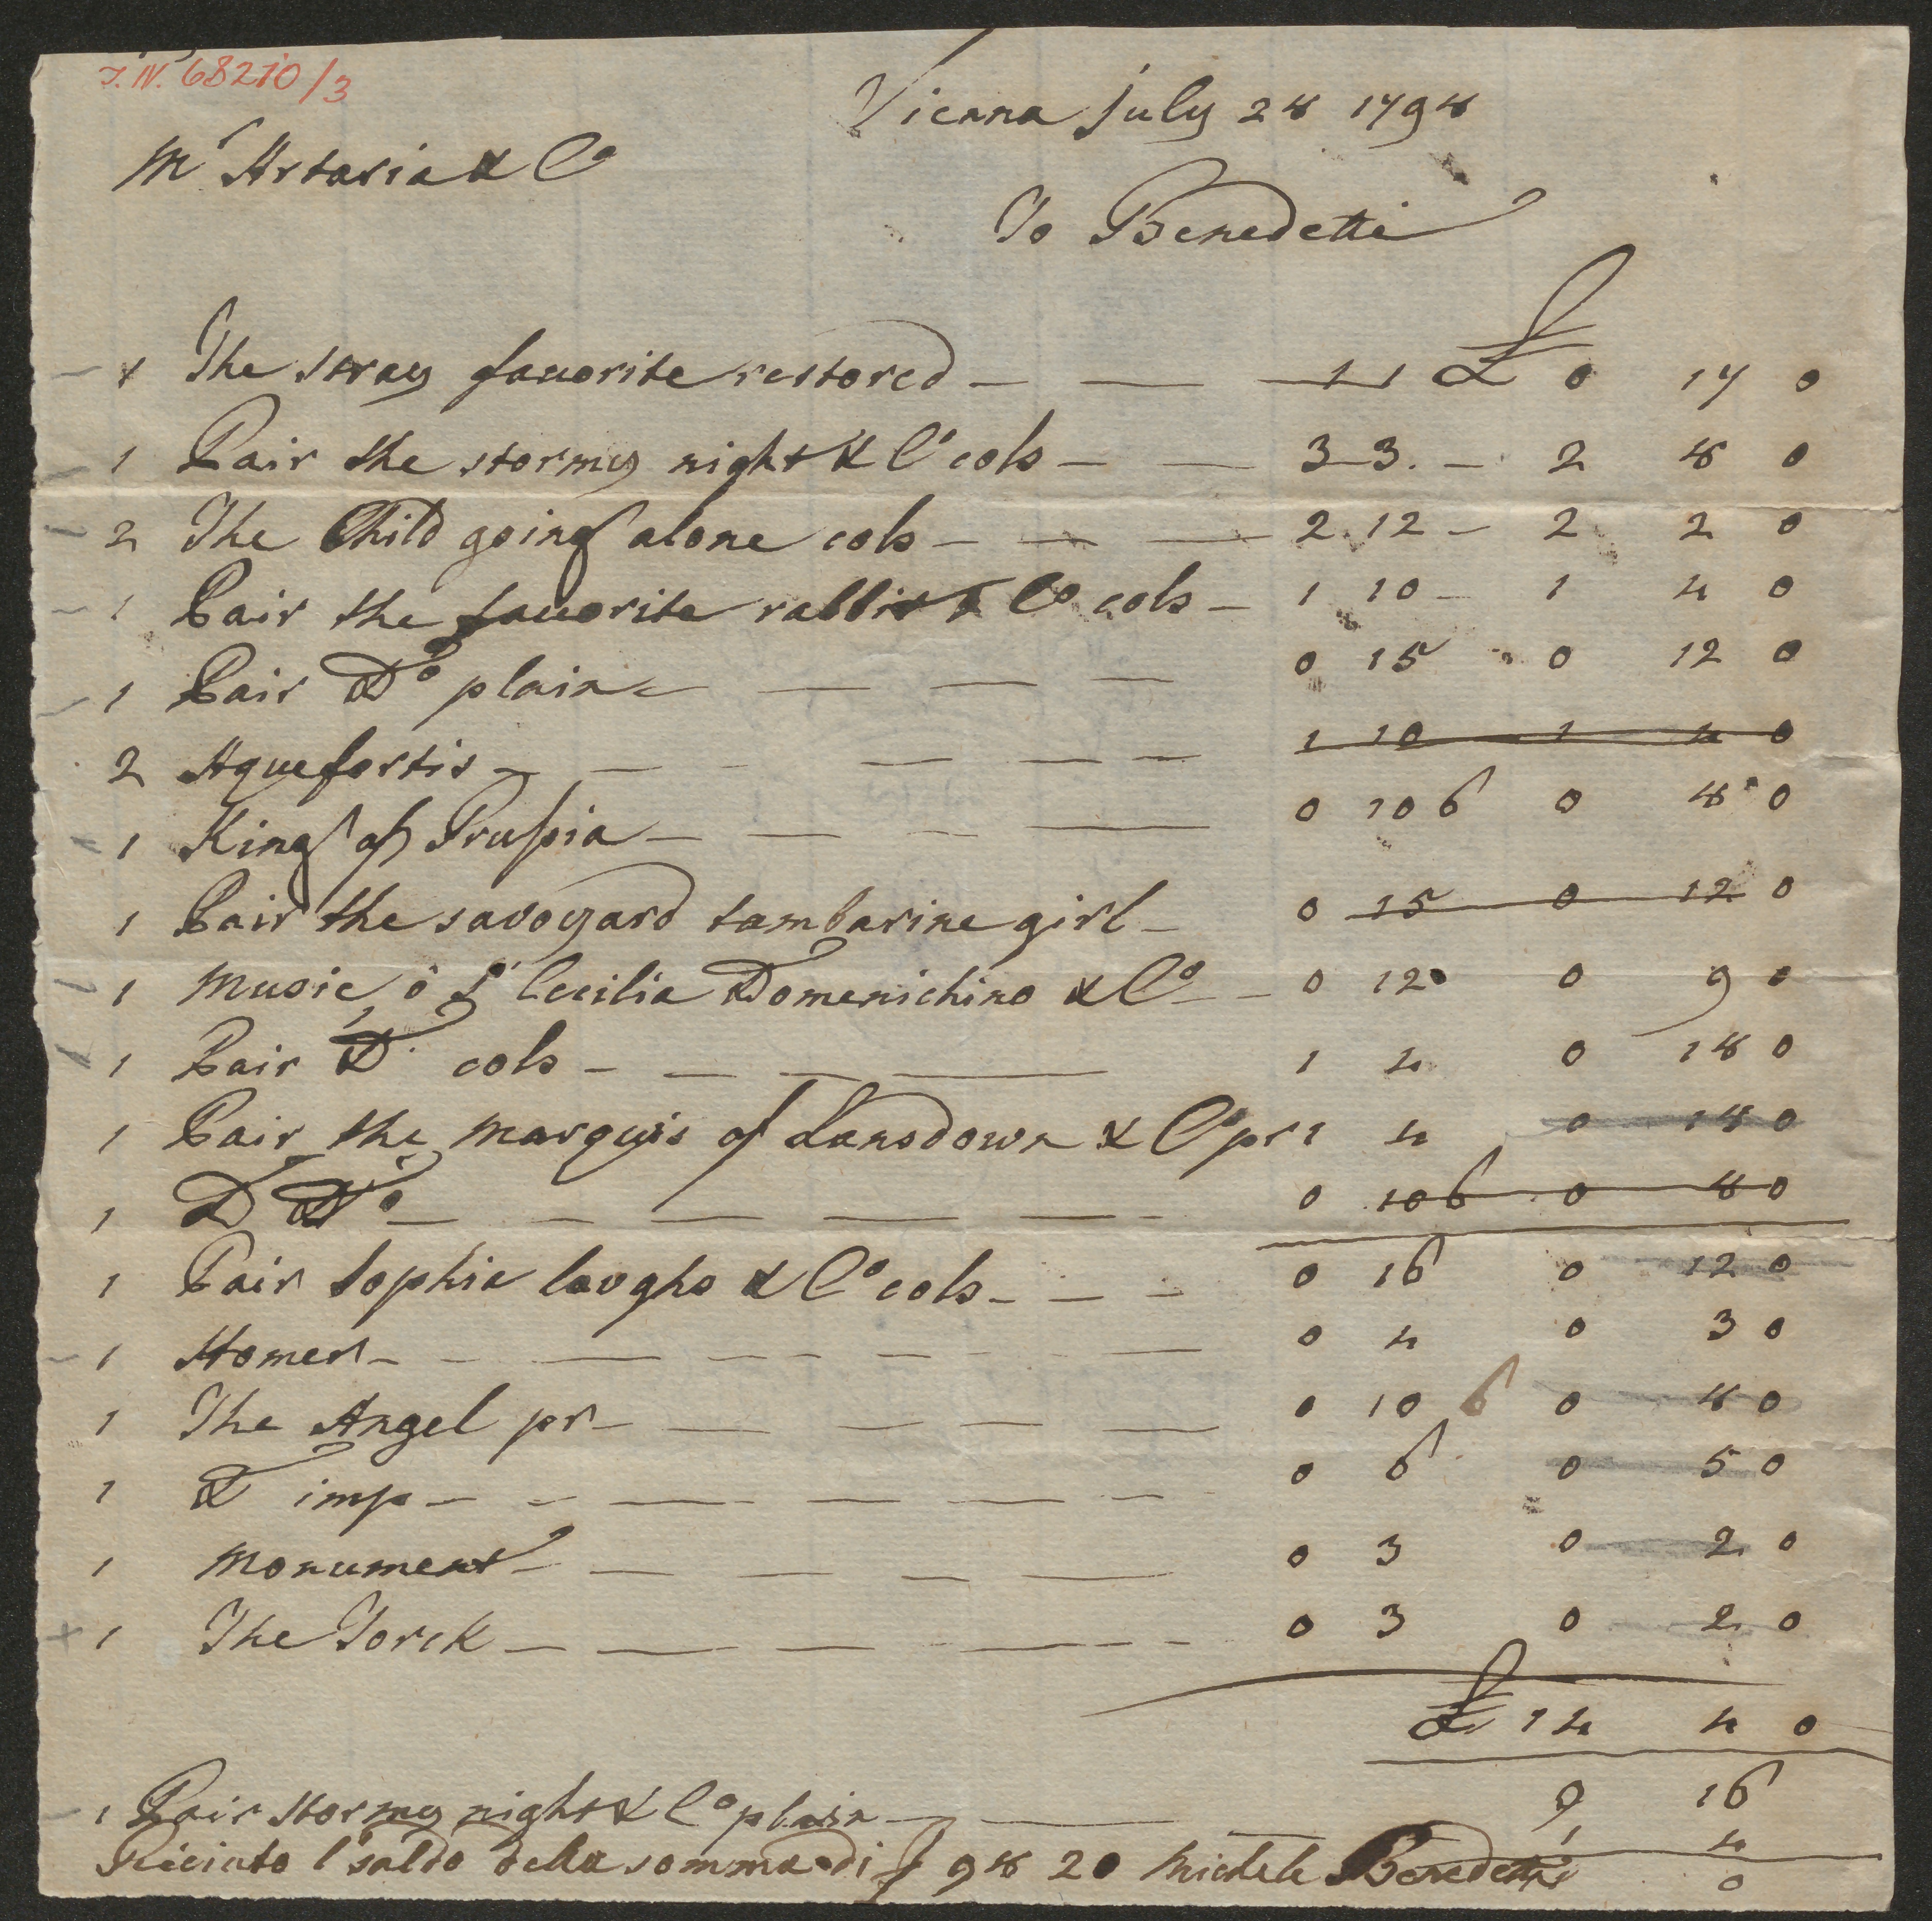 I.N. 68210/3
Vienna July 28 1798
Mr Artaria & Co
To Benedetti
1 The stray fauorite restored 1 1 £ 0 17 0
1 Pair the stormy night & Co cols 3 3 2 8 0
2 The Child going alone cols 2 12 2 2 0
1 Pair the fauorite rabbit & Co cols 1 10 1 4 0
1 Pair Do plain 0 15 0 12 0
2 Aquefortis 1 10 1 4 0
1 King of Prussia 0 10 6 0 8 0
1 Pair the savoyard tambarine girl 0 15 0 12 0
1 Music o St Cecilia Domenichino & Co 0 12 0 9 0
1 Pair D cols 1 4 0 18 0
1 Pair the Marquis of Lansdown & Co pr 1 4 0 18 0
1 D Do 0 10 6 0 8 0
1 Pair Sophia laughs & Co cols 0 16 0 12 0
1 Homer 0 4 0 3 0
1 The Angel pr 0 10 6 0 8 0
1 D imp 0 6 0 5 0
1 Monument 0 3 0 2 0
1 The Torck 0 3 0 2 0
£ 14 4 0
9 16
1 Pair stormy night & Co plain 1 4
Riceiuto l saldo della somma di f 98 20 Michele Benedetti 0